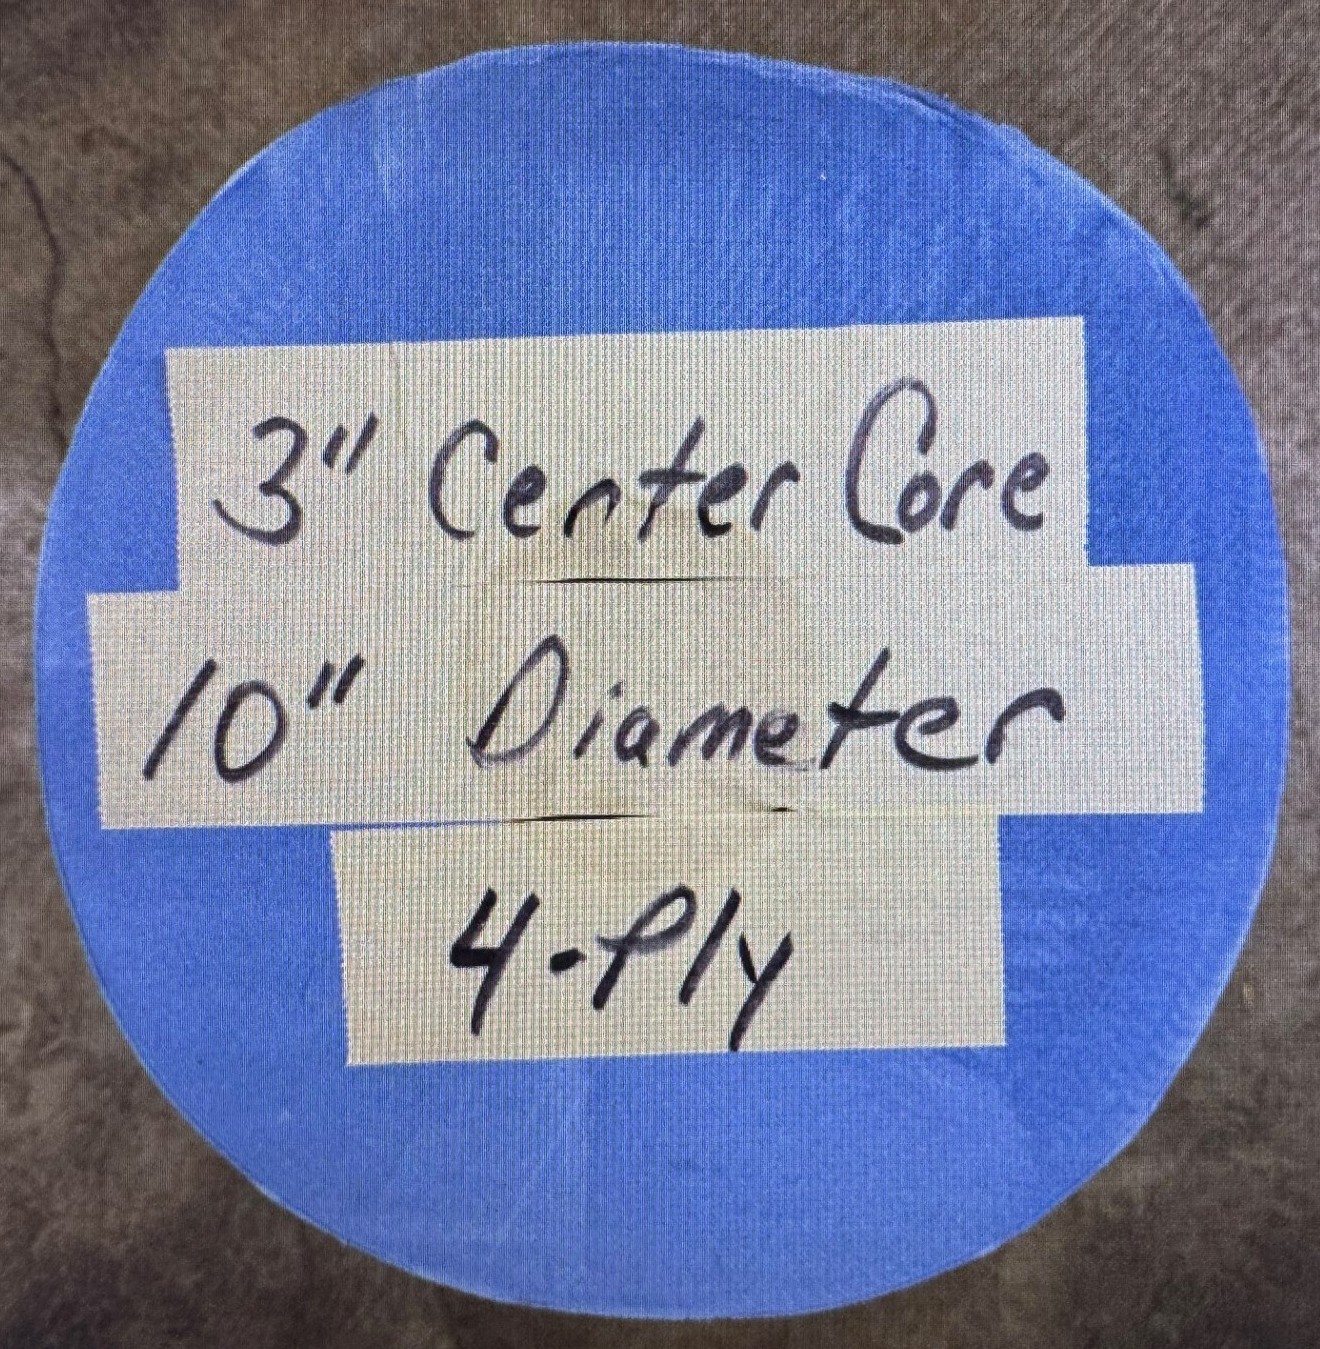 3" Center Core
10" Diameter
4-Ply